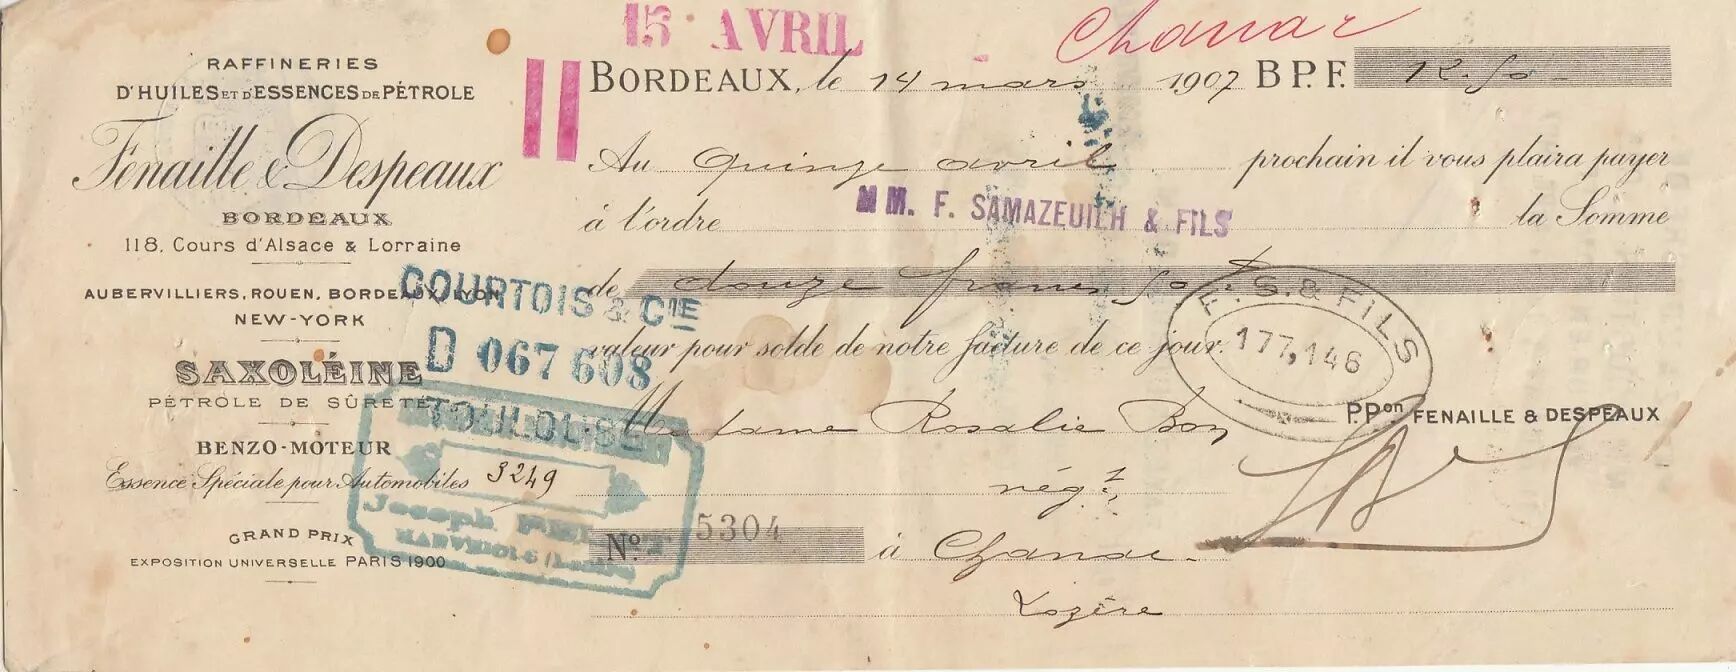 15 AVRIL
Chanac
RAFFINERIES
D'HUILES ET D'ESSENCES DE PÉTROLE
Fenaille & Despeaux
BORDEAUX
118, Cours d'Alsace & Lorraine
AUBERVILLIERS, ROUEN, BORDEAUX, LYON
NEW-YORK
SAXOLÉINE
PÉTROLE DE SÛRETÉ
BENZO-MOTEUR
Essence Spéciale pour Automobiles
GRAND PRIX
EXPOSITION UNIVERSELLE PARIS 1900
BORDEAUX, le 14 mars 1907 B.P.F. 12.50
Au quinze avril prochain il vous plaira payer
à l'ordre MM. F. SAMAZEUILH & FILS la Somme
de douze francs 50
valeur pour solde de notre facture de ce jour.
F. S. & FILS
177,146
COURTOIS & CIE
D 067608
TOULOUSE
3249
Joseph
P.Pon FENAILLE & DESPEAUX
Madame Rosalie Bon
négt
No 5304 à Chanac
Lozère